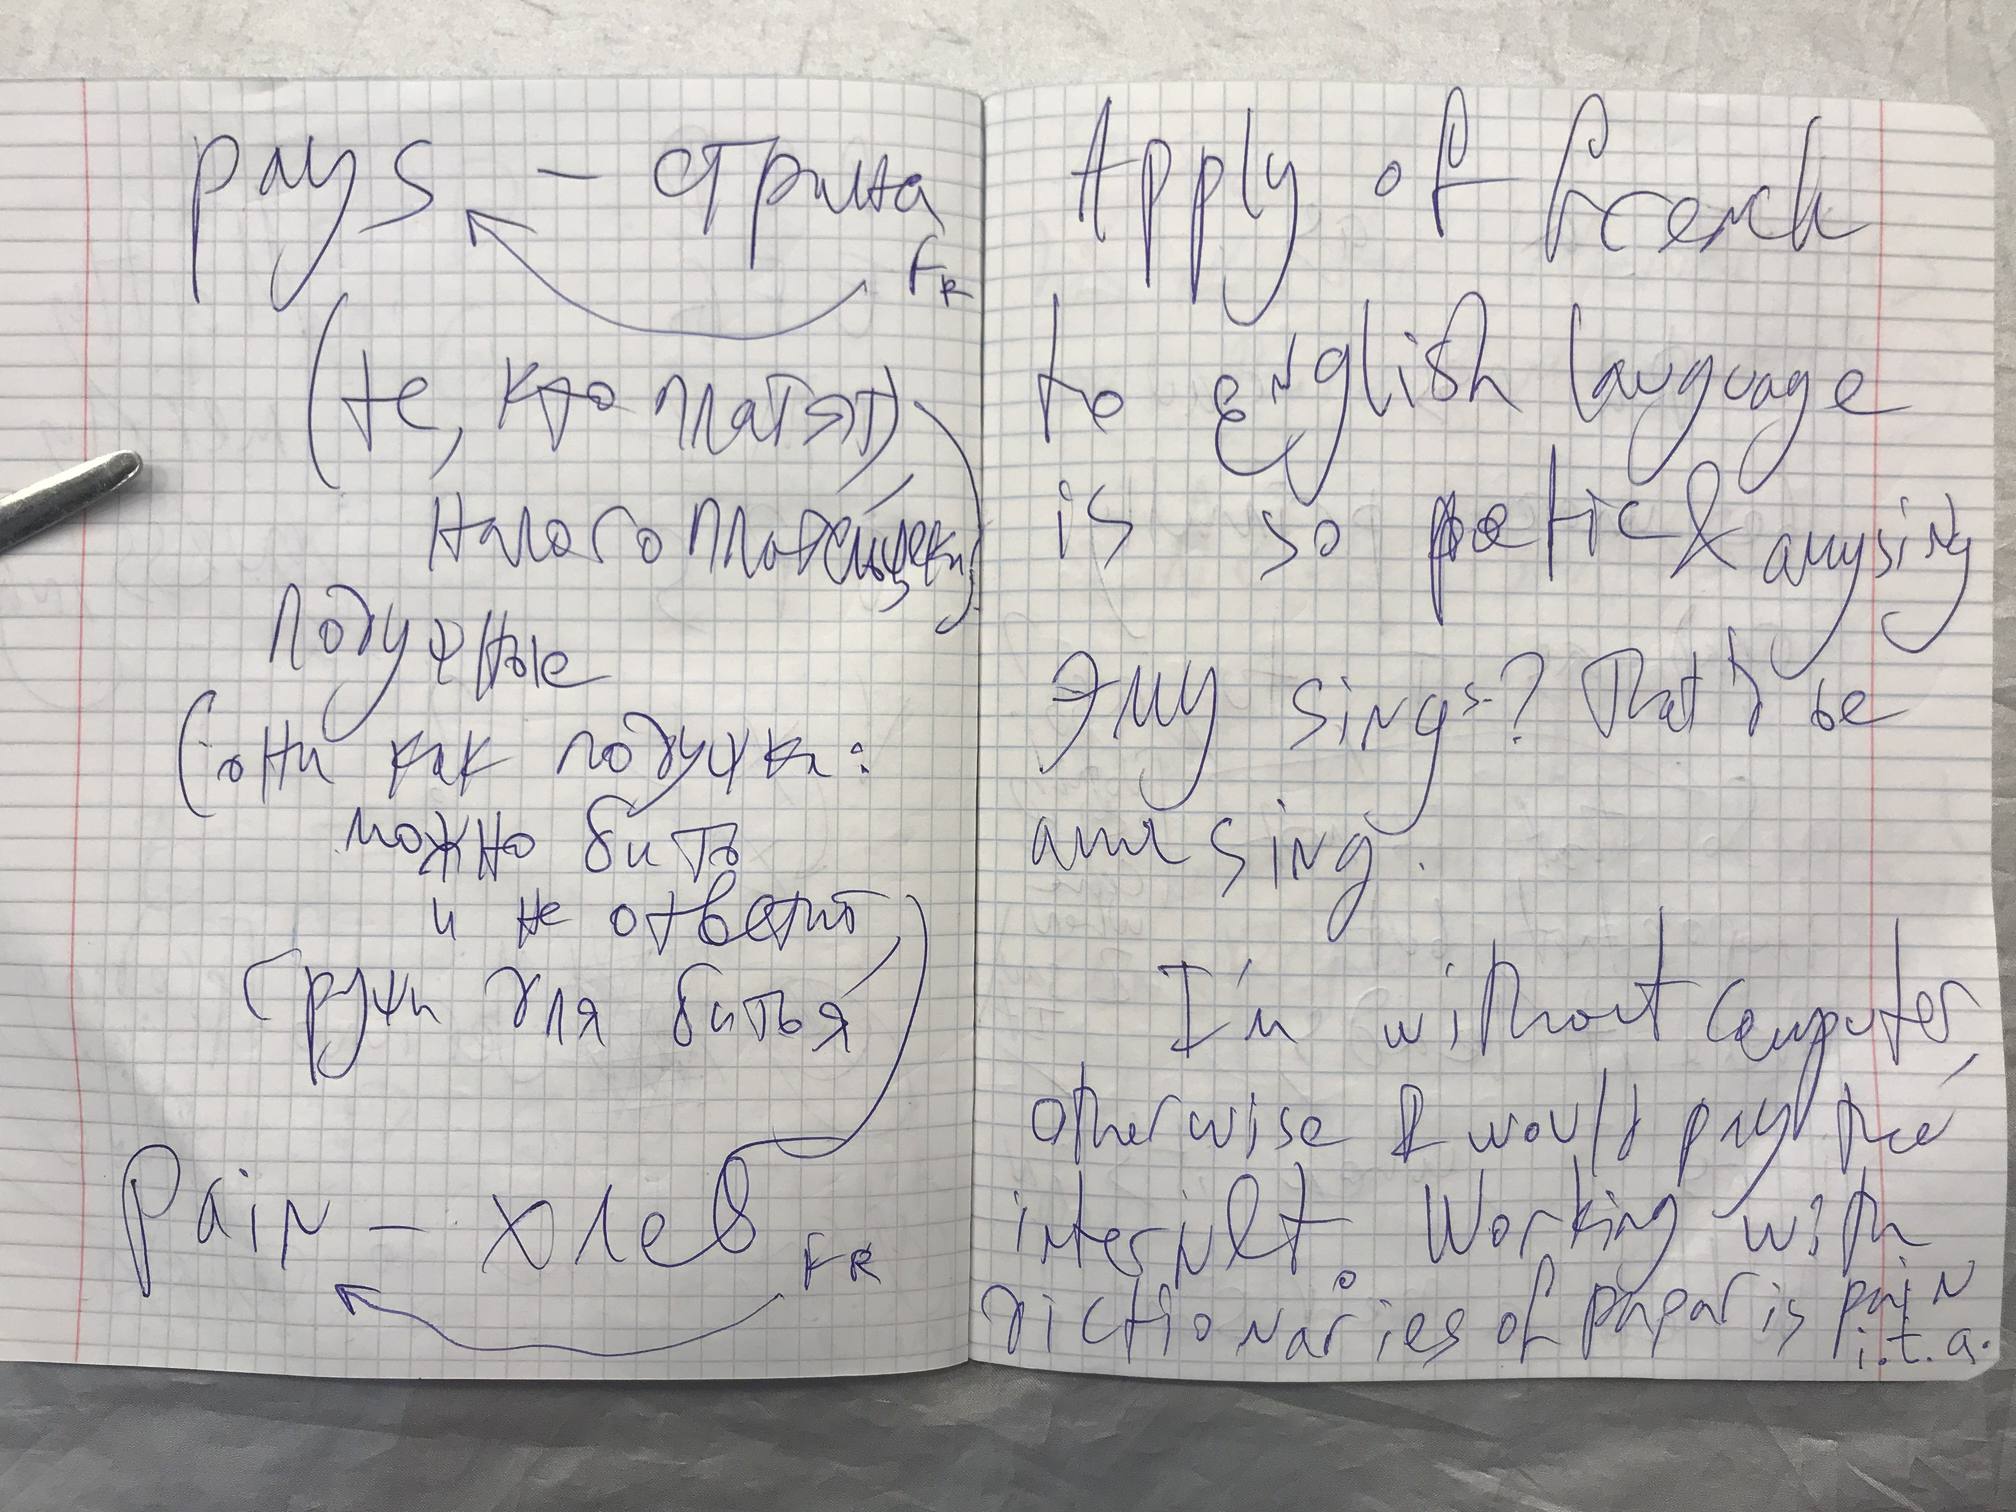 pays - страна
FR
(те, кто платят)
налогоплательщеки)
подужные
(они как подужки:
можно бить
и не ответит
гружи для битья
Pain - хлев
FR
Apply of french
to english language
is so poetic & amysing
Эму sings? That'd be
amusing.
I'm without computer,
otherwise I would pay the
internet. Working with
dictionaries of papar is pain
i.t.a.